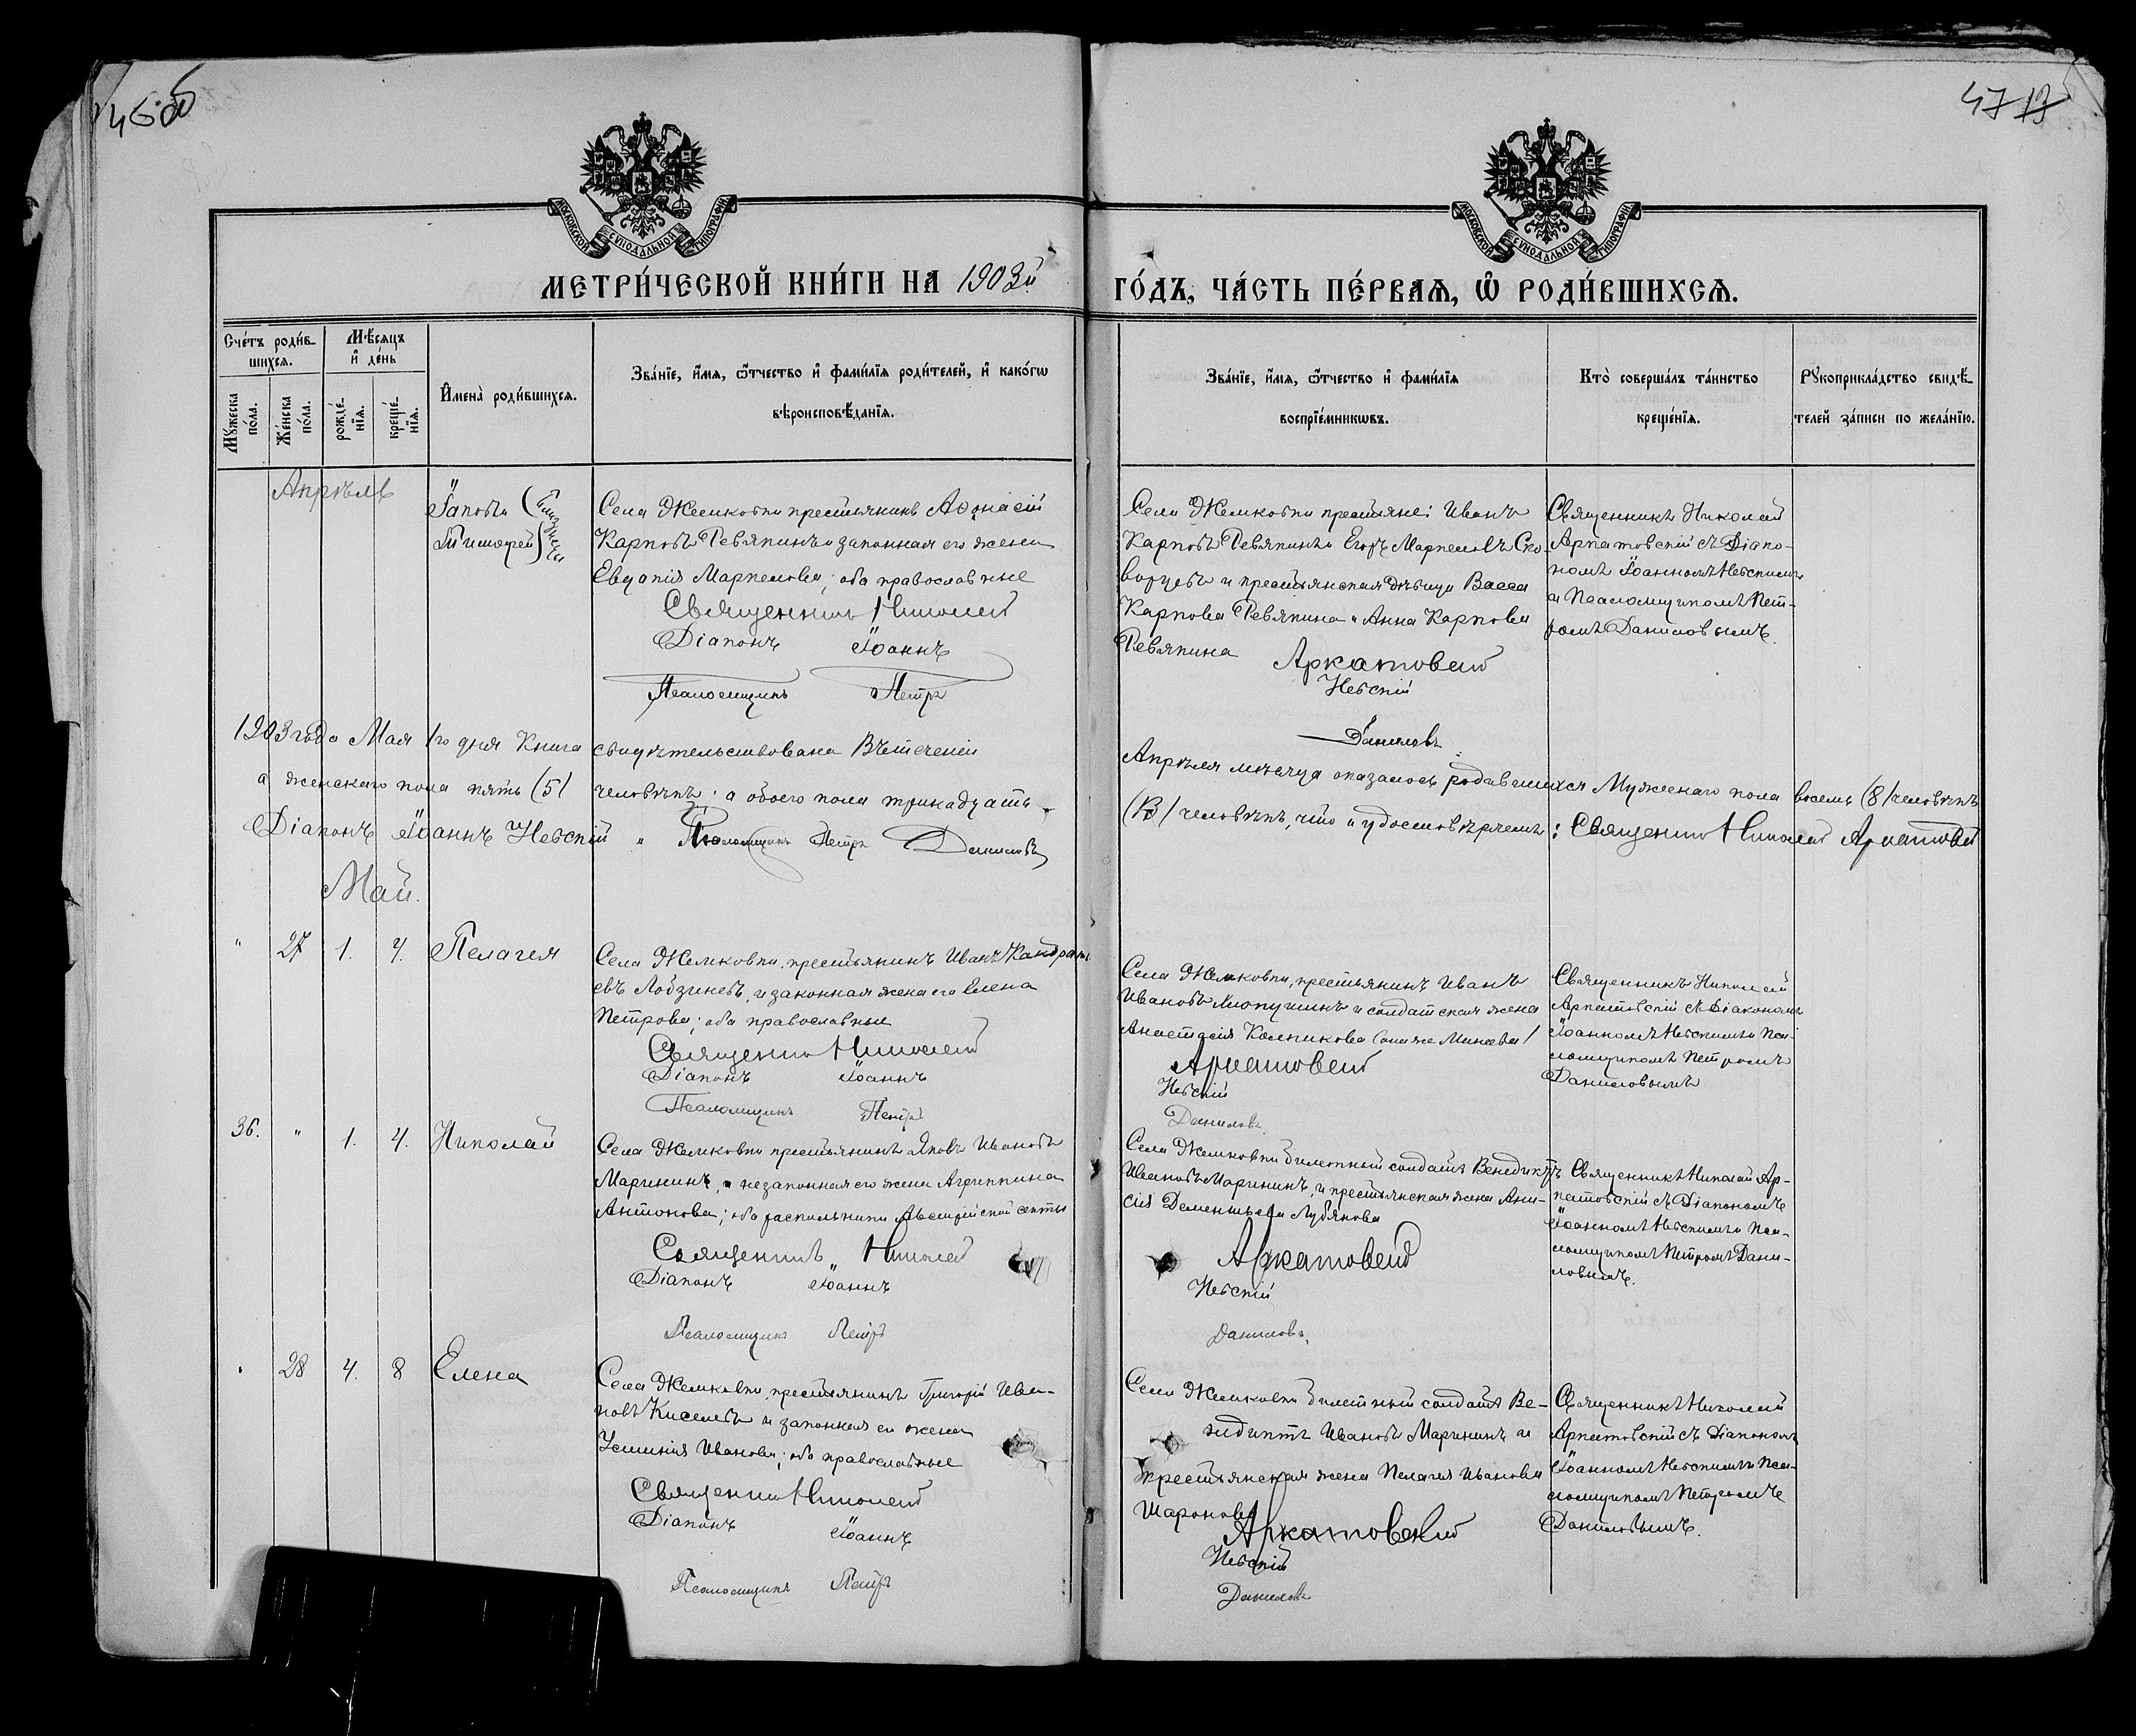 46 об
47 13
МОСКОВСКОЙ СѴНОДАЛЬНОЙ ТИПОГРАФІИ
МОСКОВСКОЙ СѴНОДАЛЬНОЙ ТИПОГРАФІИ
МЕТРИ́ЧЕСКОЙ КНИ́ГИ НА 1903й
ГО́ДЪ, ЧА́СТЬ ПЕ́РВАѦ, Ѽ РОДИ́ВШИХСѦ.
Сче́тъ роди́в-
шихсѧ.
Мꙋ́жеска
по́ла.
Же́нска
по́ла.
Мѣ́сѧцъ
и҆ де́нь
рожде́-
нїѧ.
креще́-
нїѧ.
И҆мена̀ роди́вшихсѧ.
Зва́нїе, и҆́мѧ, ѻ҆́тчество и҆ фами́лїѧ роди́телей, и҆ како́гѡ
вѣроисповѣ́данїѧ.
Зва́нїе, и҆́мѧ, ѻ҆́тчество и҆ фами́лїѧ
воспрїе́мникѡвъ.
Кто̀ соверша́лъ та́инство
креще́нїѧ.
Рꙋкоприкла́дство свидѣ́-
телей за́писи по жела́нїю.
Апрѣль
Іаковъ
Тимофей
(близнецы)
Села Жемковки крестьянинъ Афонасій
Карповъ Ревякинъ и законная его жена
Евдокія Маркелова; оба православные
Священникъ Николай
Діаконъ Іоаннъ
Псаломщикъ Петръ
Села Жемковки крестьяне: Иванъ
Карповъ Ревякинъ и Егоръ Маркеловъ Ско-
ворцовъ и крестьянская дѣвица Васса
Карпова Ревякина и Анна Карпова
Ревякина
Аркатовскій
Невскій
Даниловъ
Священникъ Николай
Аркатовскій съ Діако-
номъ Іоанномъ Невскимъ
и Псаломщикомъ Пет-
ромъ Даниловымъ.
1903 года Мая 1го дня Книга свидѣтельствована Въ теченіи
Апрѣля мѣсяца оказалось родившихся Мужскаго пола восемь (8) человѣкъ
а женскаго пола пять (5) человѣкъ; а обоего пола тринадцать
(13) человѣкъ, что и удостовѣряемъ: Священникъ Николай Аркатовскій
Діаконъ Іоаннъ Невскій Псаломщикъ Петръ Даниловъ
Май.
" 27 1. 4. Пелагея
Села Жемковки, крестьянинъ Иванъ Кандрать-
евъ Лобзиневъ, и законная жена его Елена
Петрова; оба православные
Священникъ Николай
Діаконъ Іоаннъ
Псаломщикъ Петръ
Села Жемковки, крестьянинъ Иванъ
Ивановъ и солдатская жена
Анастасія Колникова (она же Минеева)
Аркатовскій
Невскій
Даниловъ.
Священникъ Николай
Аркатовскій съ Діакономъ
Іоанномъ Невскимъ и Пса-
ломщикомъ Петромъ
Даниловымъ
36. " 1. 4. Николай
Села Жемковки крестьянинъ Яковъ Ивановъ
Марининъ, и незаконная его жена Агриппина
Антонова; оба раскольники Австрійской секты
Священникъ Николай
Діаконъ Іоаннъ
Псаломщикъ Петръ
Села Жемковки билетный солдатъ Венедиктъ
Ивановъ Марининъ, и крестьянская жена Ани-
сія Дементьева Лубянова
Аркатовскій
Невскій
Даниловъ.
Священникъ Николай Ар-
катовскій съ Діакономъ
Іоанномъ Невскимъ и Пса-
ломщикомъ Петромъ Дани-
ловымъ.
" 28 4. 8 Елена
Села Жемковки, крестьянинъ Григорій Ива-
новъ Киселевъ и законная его жена
Устинія Иванова; оба православные
Священникъ Николай
Діаконъ Іоаннъ
Псаломщикъ Петръ
Села Жемковки билетный солдатъ Ве-
недиктъ Ивановъ Марининъ и
крестьянская жена Пелагея Иванова
Шаронова
Аркатовскій
Невскій
Даниловъ
Священникъ Николай
Аркатовскій съ Діакономъ
Іоанномъ Невскимъ и Пса-
ломщикомъ Петромъ
Даниловымъ.